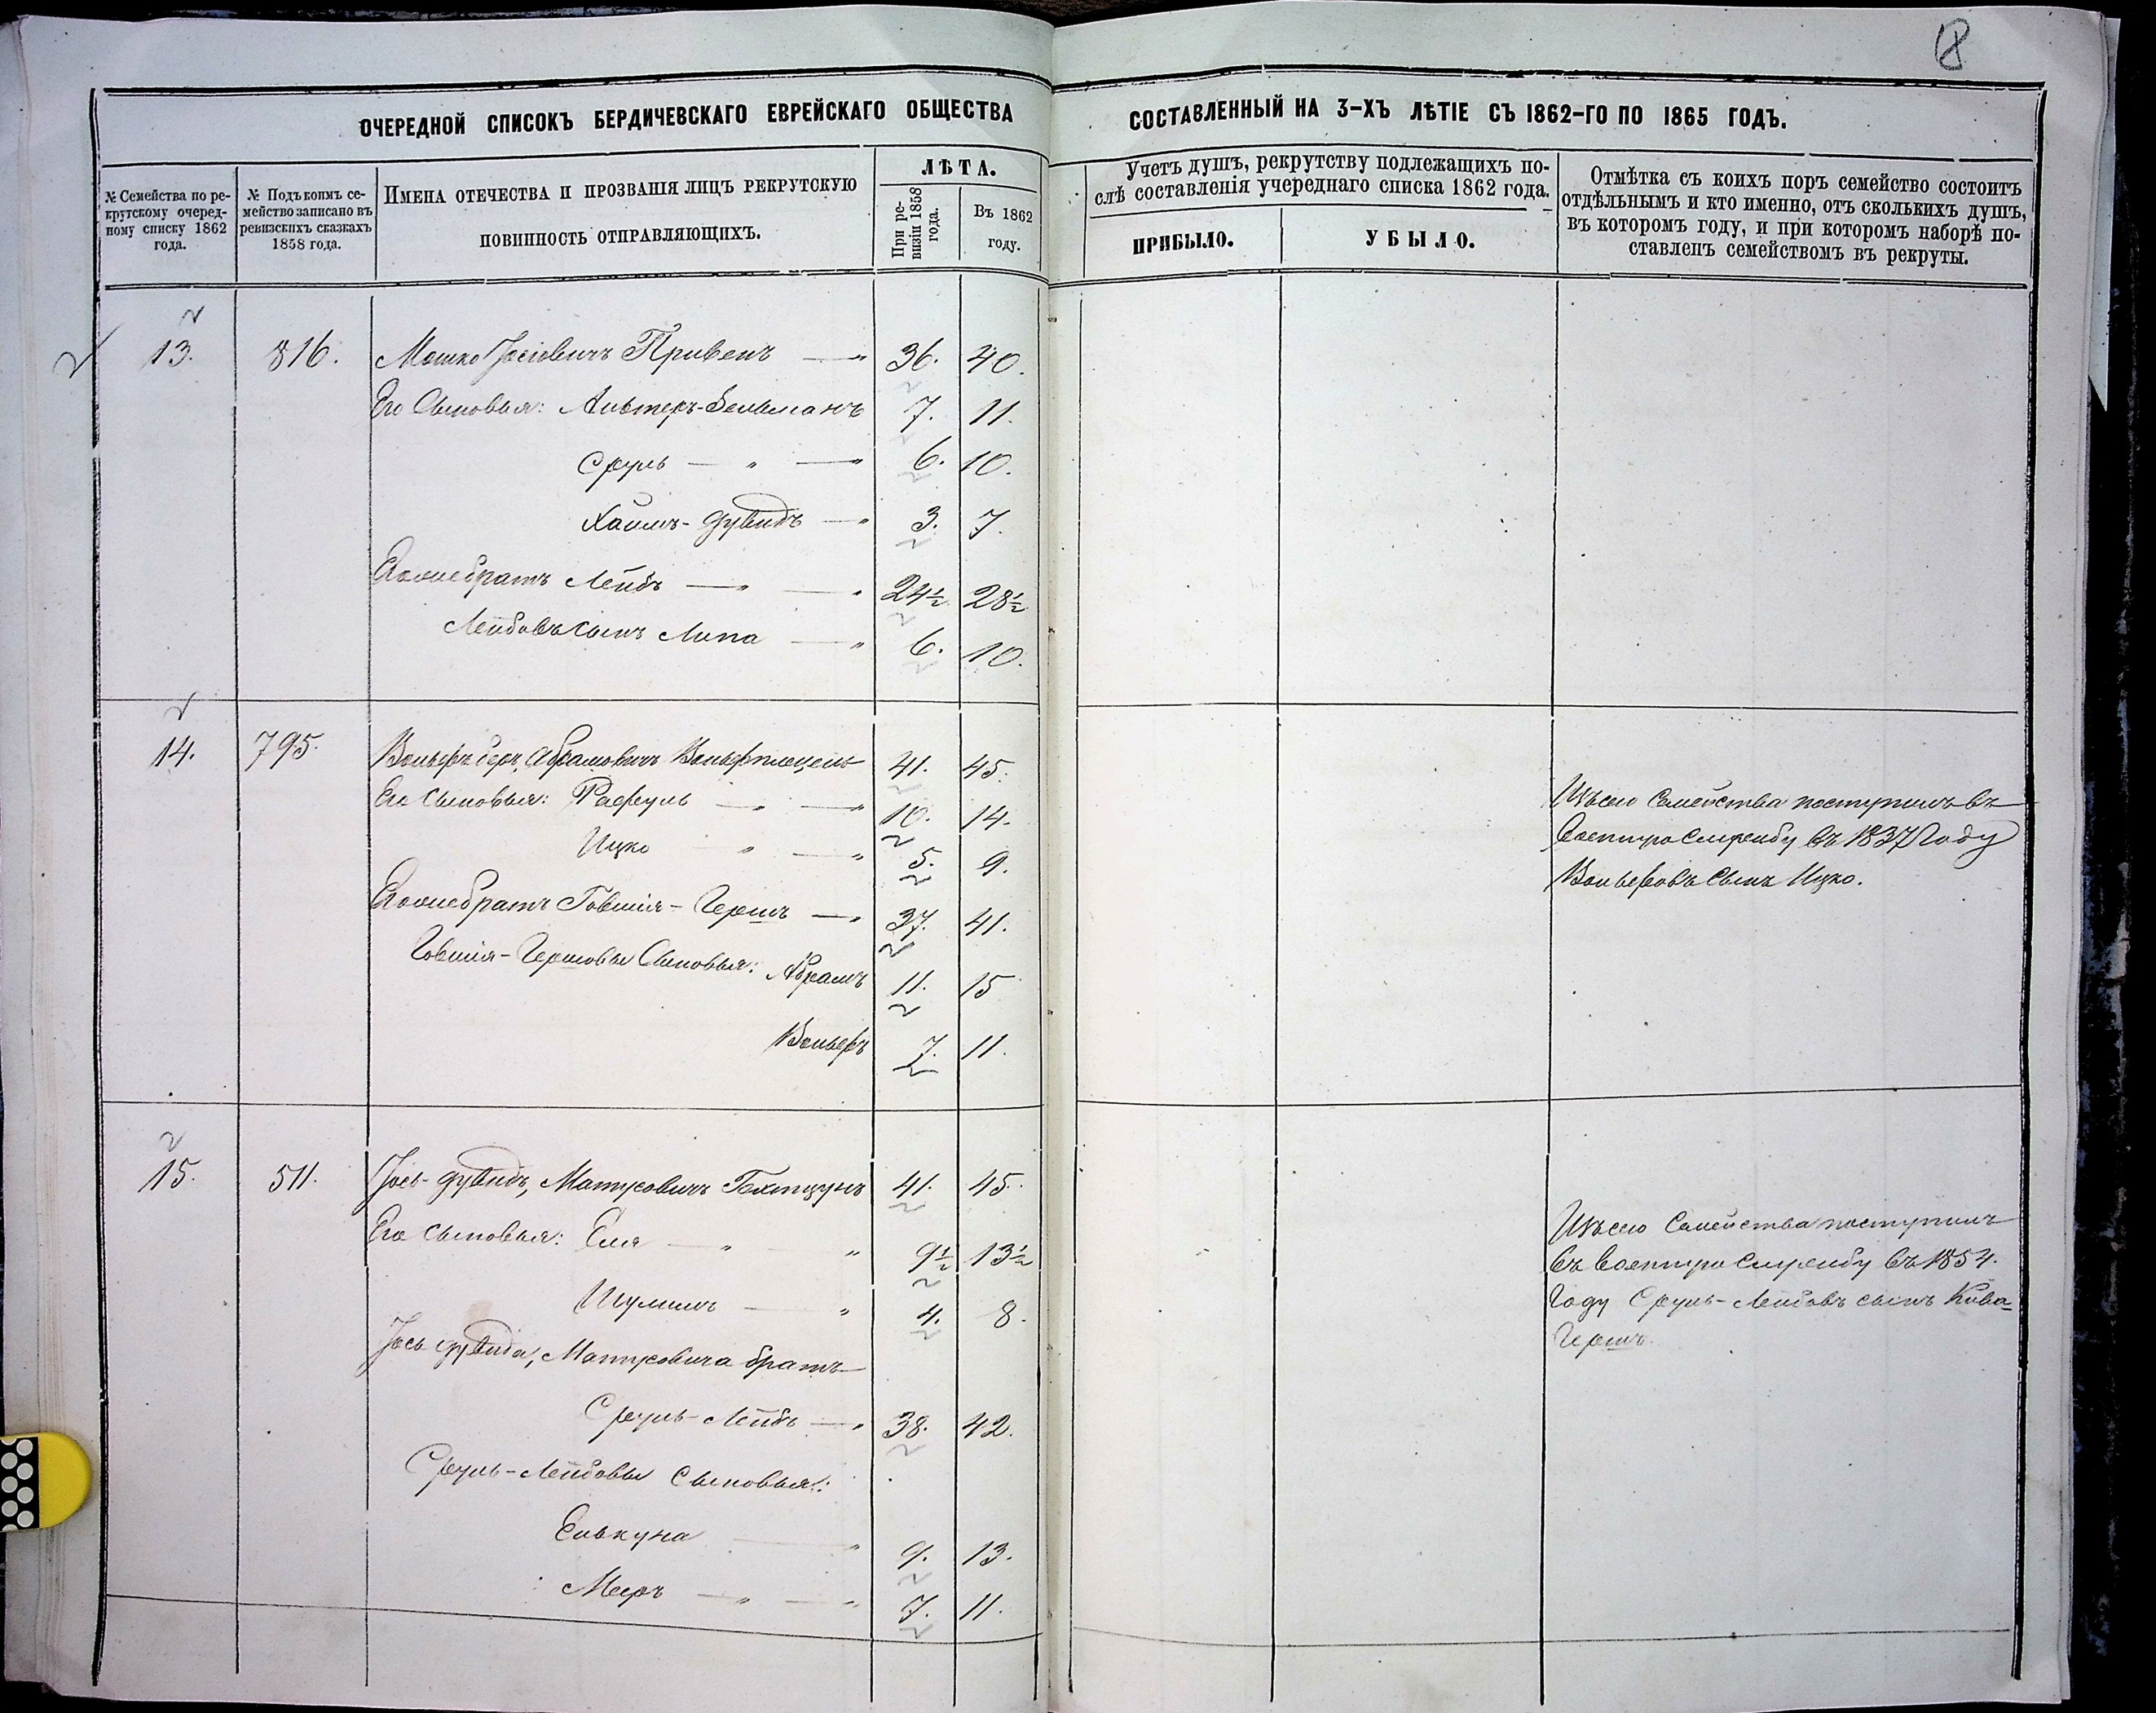 8
ОЧЕРЕДНОЙ СПИСОКЪ БЕРДИЧЕВСКАГО ЕВРЕЙСКАГО ОБЩЕСТВА СОСТАВЛЕННЫЙ НА 3-ХЪ ЛѢТІЕ СЪ 1862-ГО ПО 1865 ГОДЪ.
№ Семейства по рекрутскому очередному списку 1862 года.
№ Подъ коимъ семейство записано въ ревизскихъ сказкахъ 1858 года.
Имена отечества и прозванія лицъ рекрутскую
повинность отправляющихъ.
ЛѢТА.
При ревизіи 1858 года.
Въ 1862 году.
Учетъ душъ, рекрутству подлежащихъ по-
слѣ составленія учереднаго списка 1862 года.
ПРИБЫЛО.
УБЫЛО.
Отмѣтка съ коихъ поръ семейство состоитъ
отдѣльнымъ и кто именно, отъ сколькихъ душъ,
въ котором году, и при котороmъ наборѣ по-
ставленъ семействомъ въ рекруты.
13. 816. Мошко Іосіовичъ Привенъ — " 36. 40.
Его Сыновья: Альтеръ-Зельманъ 7. 11.
Сруль — " — " 6. 10.
Хаимъ-Дувидъ — " 3. 7.
Его же братъ Лейбъ — " — " 24½ 28½
Лейбовъ сынъ Липа — " 6. 10.
14. 795. Вольфъ беръ, Абрамовичъ 41. 45.
Его Сыновья: Рафуль — " — " 10. 14.
Ицко " — " 5. 9.
Его же братъ Говшія-Гершъ — " 37. 41.
Говшія-Гершовы Сыновья: Абрамъ 11. 15
Вольфъ 7. 11.
Изъ сего Семейства поступилъ въ
Военную Службу въ 1837 Году
Вольфовъ Сынъ Ицко.
15. 511. Іось-Дувидъ, Матусовичъ 41. 45.
Его Сыновья: Еля — " " 9½ 13½
Шулимъ — " 4. 8.
Іось Дувида, Матусовича братъ
Сруль-Лейбъ — " 38. 42.
Сруль-Лейбовы Сыновья:
Елькуна — " 9. 13.
Меръ — " — " 7. 11.
Изъ сего Семейства поступилъ
въ Военную Службу въ 1854.
Году Сруль-Лейбовъ сынъ Кива-
Гершъ.